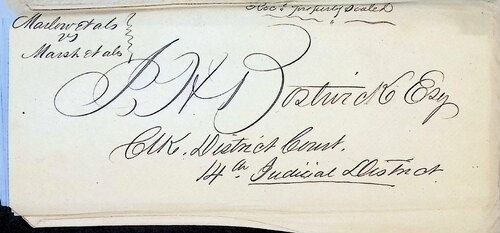 Rec'd properly Sealed
Marlow et als
vs
Marsh et als
J H Bostwick Esq
Clk. District Court.
14th Judicial District.